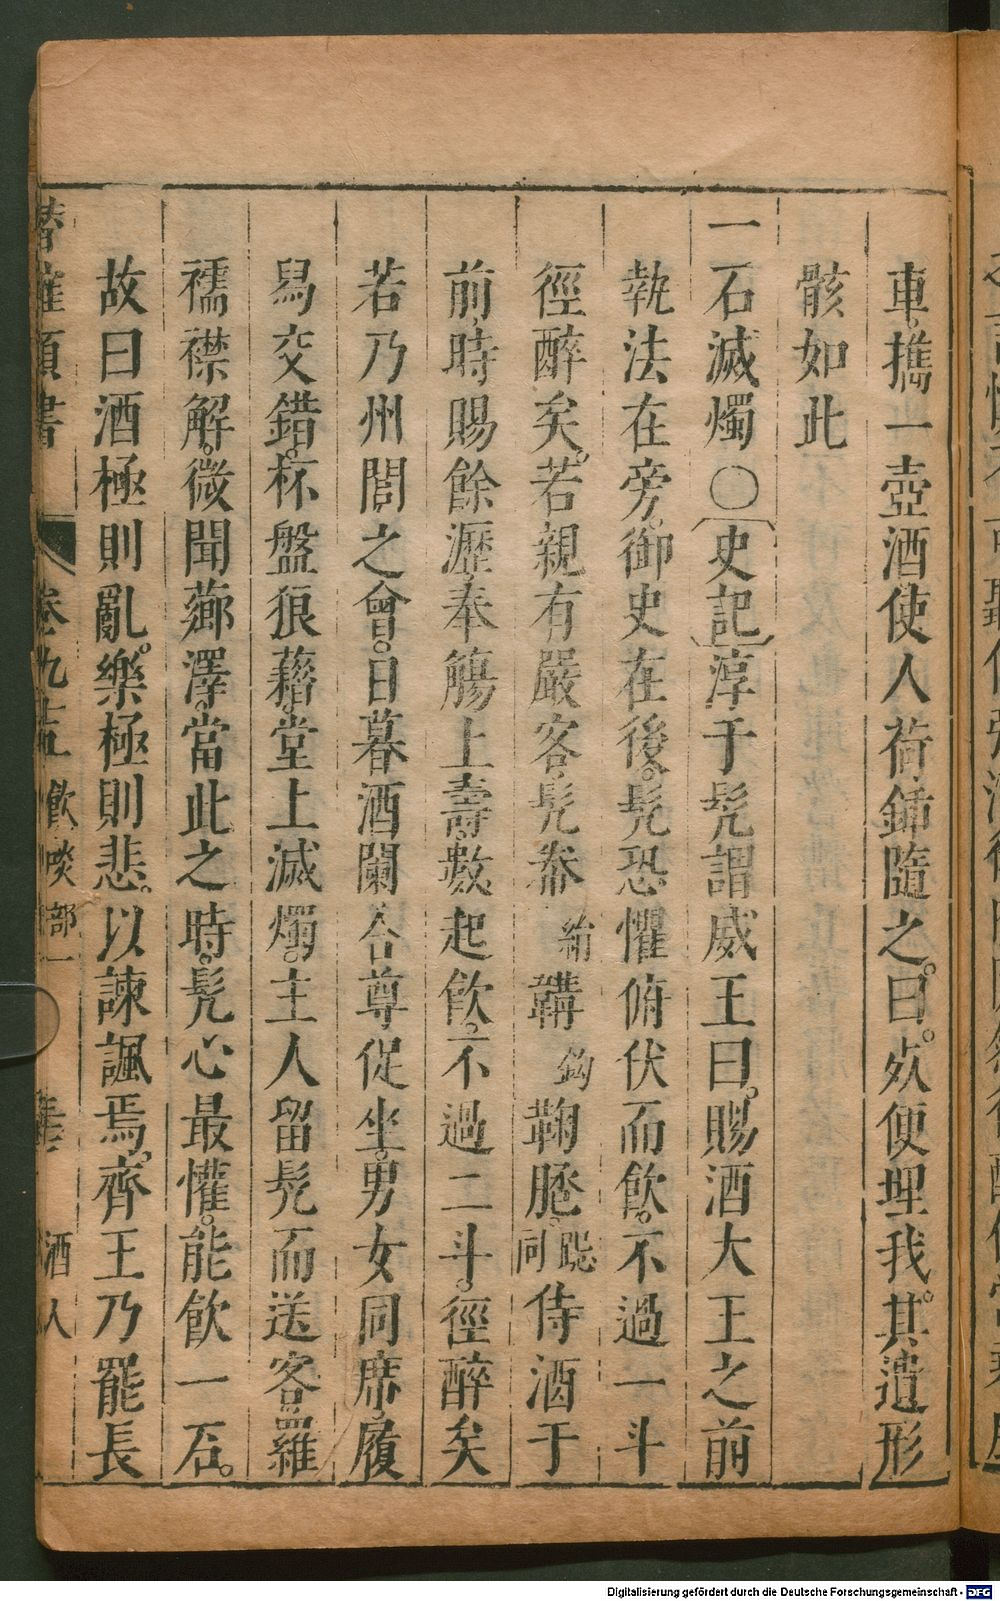 車。攜一壺酒使人荷鍤隨之。曰。死便埋我。其遺形
骸如此
一石滅燭〇〔史記〕淳于髡謂威王曰。賜酒大王之前
執法在旁。御史在後。髡恐懼俯伏而飲。不過一斗
徑醉矣。若親有嚴客髡帣絹韝鉤鞠䠆跽同侍酒于
前時賜餘瀝。奉觴上壽。數起飲。不過二斗。徑醉矣
若乃州閭之會。日暮酒闌合尊促坐。男女同席。履
舄交錯。杯盤狼藉。堂上滅燭。主人留髡而送客。羅
襦襟解。微聞薌澤。當此之時。髡心最懽。能飲一石。
故曰酒極則亂。樂極則悲。以諫諷焉。齊王乃罷長
卷九十五 飲啖部一 酒人
Digitalisierung gefördert durch die Deutsche Forschungsgemeinschaft - DFG